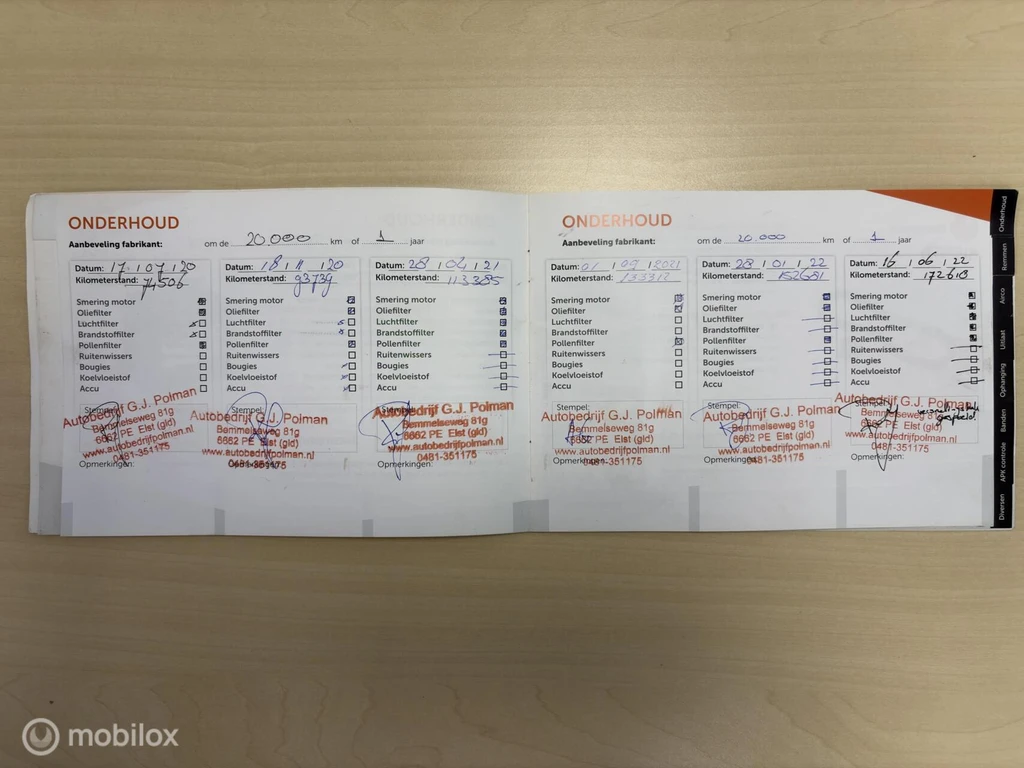 ONDERHOUD
Aanbeveling fabrikant: om de 20.000 km of 1 jaar
Datum: 17 | 07 | 20
Kilometerstand: 74506
Smering motor
Oliefilter
Luchtfilter
Brandstoffilter
Pollenfilter
Ruitenwissers
Bougies
Koelvloeistof
Accu
Stempel:
Autobedrijf G.J. Polman
Bemmelseweg 81g
6662 PE Elst (gld)
www.autobedrijfpolman.nl
0481-351175
Opmerkingen:
Datum: 18 | 11 | 20
Kilometerstand: 93739
Smering motor
Oliefilter
Luchtfilter
Brandstoffilter
Pollenfilter
Ruitenwissers
Bougies
Koelvloeistof
Accu
Stempel:
Autobedrijf G.J. Polman
Bemmelseweg 81g
6662 PE Elst (gld)
www.autobedrijfpolman.nl
0481-351175
Opmerkingen:
Datum: 28 | 04 | 21
Kilometerstand: 113385
Smering motor
Oliefilter
Luchtfilter
Brandstoffilter
Pollenfilter
Ruitenwissers
Bougies
Koelvloeistof
Accu
Stempel:
Autobedrijf G.J. Polman
Bemmelseweg 81g
6662 PE Elst (gld)
www.autobedrijfpolman.nl
0481-351175
Opmerkingen:
ONDERHOUD
Aanbeveling fabrikant: om de 20.000 km of 1 jaar
Datum: 01 | 09 | 2021
Kilometerstand: 133312
Smering motor
Oliefilter
Luchtfilter
Brandstoffilter
Pollenfilter
Ruitenwissers
Bougies
Koelvloeistof
Accu
Stempel:
Autobedrijf G.J. Polman
Bemmelseweg 81g
6662 PE Elst (gld)
www.autobedrijfpolman.nl
0481-351175
Opmerkingen:
Datum: 28 | 01 | 22
Kilometerstand: 152681
Smering motor
Oliefilter
Luchtfilter
Brandstoffilter
Pollenfilter
Ruitenwissers
Bougies
Koelvloeistof
Accu
Stempel:
Autobedrijf G.J. Polman
Bemmelseweg 81g
6662 PE Elst (gld)
www.autobedrijfpolman.nl
0481-351175
Opmerkingen:
Datum: 16 | 06 | 22
Kilometerstand: 172610
Smering motor
Oliefilter
Luchtfilter
Brandstoffilter
Pollenfilter
Ruitenwissers
Bougies
Koelvloeistof
Accu
Stempel:
Autobedrijf G.J. Polman
Bemmelseweg
6662 PE Elst (gld)
www.autobedrijfpolman.nl
0481-351175
Opmerkingen:
Onderhoud
Remmen
Airco
Uitlaat
Ophanging
Banden
APK controle
Diversen
mobilox